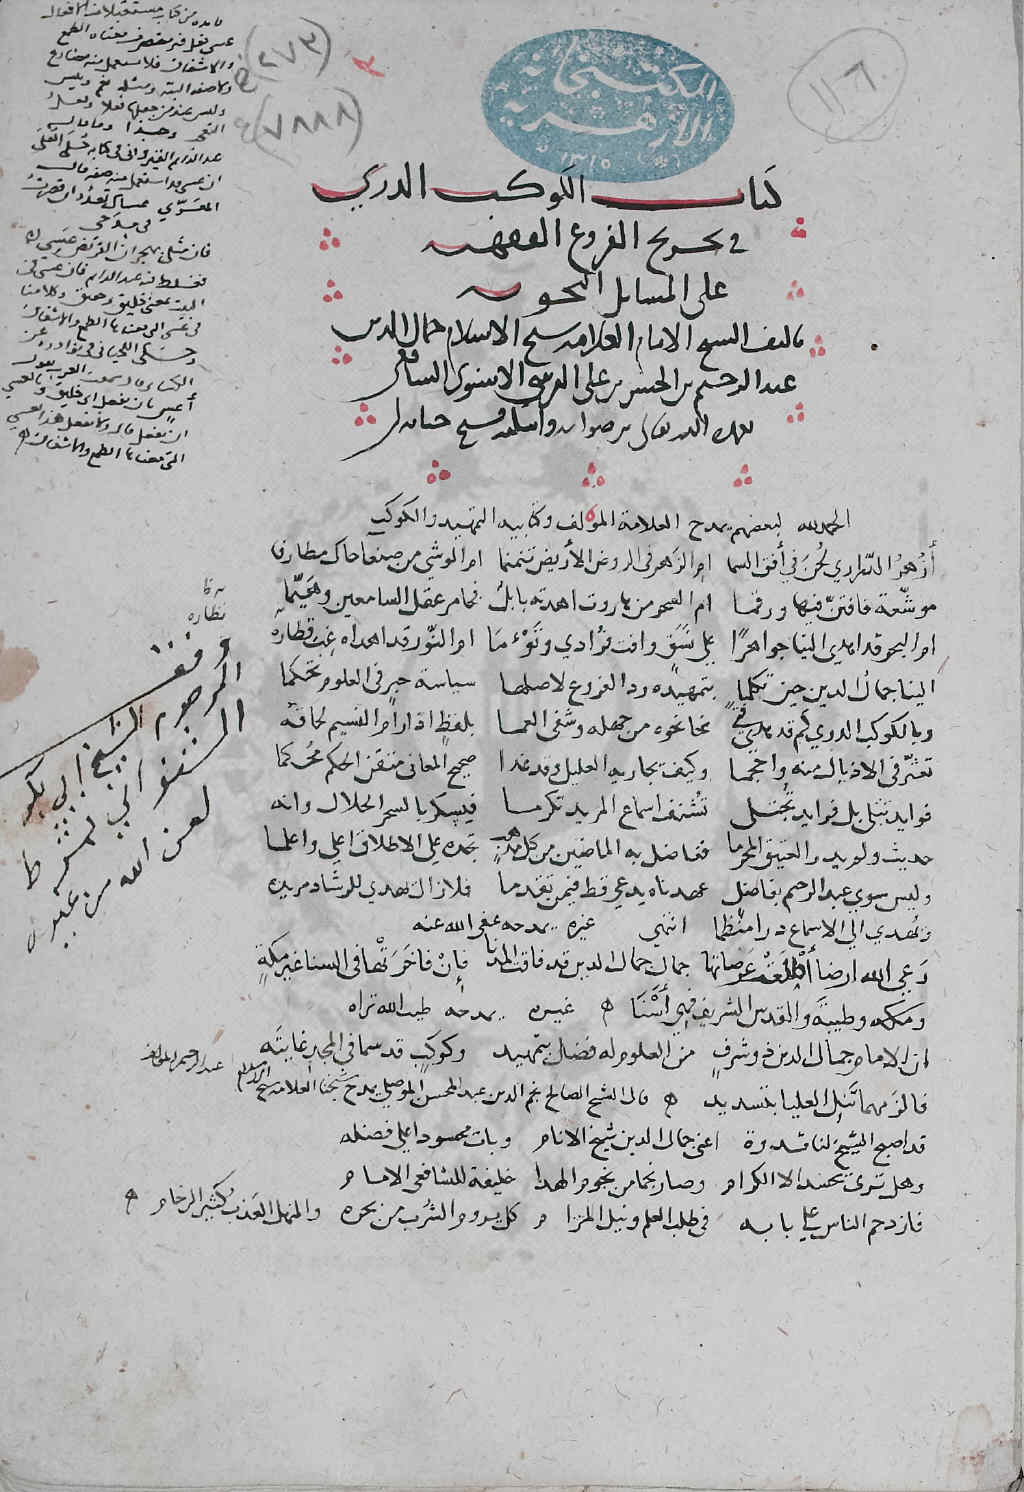 الكتبخانة
الأزهرية
١٣١٥
١١٦٠
(٢٧٣)
(٧٨٨٨)
كتاب الكوكب الدري
في تخريج الفروع الفقهية
على المسائل النحوية
تاليف الشيخ الامام العلامة شيخ الاسلام جمال الدين
عبد الرحيم بن الحسن بن علي القرشي الاسنوي الشافعي
تغمده الله تعالى برضوانه واسكنه فسيح جنانه
الحمد لله لبعضهم يمدح العلامة المؤلف وكتابيه التمهيد والكوكب
أزهر الدراري لحن في أفق السما ام الزهر في الروض الأريض تنمنما ام الوشي من صنعا حاك مطارفا
موشعة فافتن فيها ورقما ام السحر من هاروت اهدته بابل فخامر عقل السامعين وهيما
ام البحر قد اهدى الينا جواهرا على نسق وافت فرادى وتوءما ام النور قد اهداه غب قطاره
الينا جمال الدين حين تكلما بتمهيده رد الفروع لاصلها سياسة حبر في العلوم تحكما
وبالكوكب الدري كم قد هدي فتى نحا نحوه من جهله وشفى العما بلفظ اذا رام النسيم لحاقه
تعثر في الاذيال منه واحجما وكيف يجاريه العليل وقد غدا صحيح المعاني متقن الحكم محكما
فوايد تتلى بل فرايد تجتلى تشنف اسماع المريد تكرما فيسكر بالسحر الحلال وانه
حديث ولم يرد العتيق المحرما ففاضل به الماضين من كل مذهب تجده على الاطلاق اعلى واعلما
وليس سوى عبد الرحيم بفاضل عهدناه يدعى قط فيمن تقدما فلا زال يهدي للرشاد مريده
ويهدي الى الاسماع درا منظما انتهى غيره يمدحه عفى الله عنه
رعى الله ارضا اطلعت عرصاتها جمال جمال الدين قد فاقت المدنا فإن فاخرتها في السنا غير مكة
ومكه وطيبة والقدس الشريف فهي أسنا ه غيره يمدحه طيب الله ثراه
ان الامام جمال الدين ذو شرف من العلوم له فضل بتمهيد وكوكب قد سما في المجد غايته
فالزمهما تنل العليا بتسديد ه قال الشيخ الصالح نجم الدين عبد المحسن الموصلي يمدح شيخنا العلامة شيخ الاسلام
قد اصبح الشيخ لنا قدوة اعني جمال الدين شيخ الانام وبات محسودا على فضله
وهل ترى تحسد الا الكرام وصار نجما من نجوم الهدا خليفة للشافعي الامام
فازدحم الناس على بابه في طلب العلم ونيل المرام كل يروم الشرب من بحره والمنهل العذب كثير الزحام ه
وقف
المرحوم الشيخ ابي بكر
لعن الله من غير
فايده من كتاب مستقبلات الافعال
عسى فعل غير متصرف ومعناه الطمع
والاشفاق فلا يستعمل منه مضارع